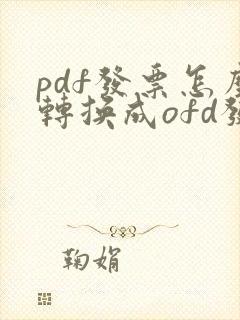 pdf發票怎麼
轉換成ofd發
鞠娟